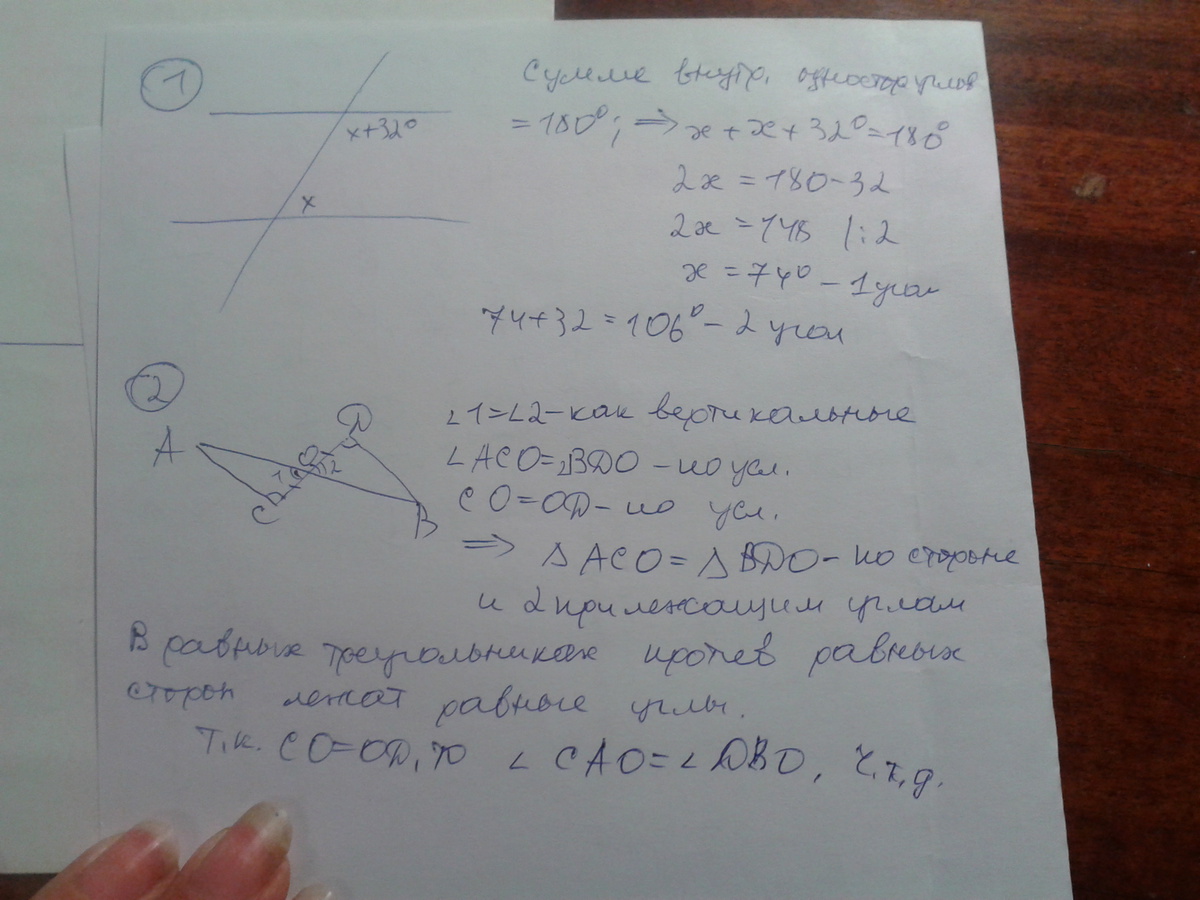 1
x+32°
x
Сумма внутр. одностор углов
=180°; ⇒ x + x + 32° = 180°
2x = 180-32
2x = 148 /:2
x = 74° - 1 угол
74+32 = 106° - 2 угол
2
A
D
O
1
2
C
B
∠1=∠2-как вертикальные
∠ACO=∠BDO - по усл.
CO=OD- по усл.
⇒ △ACO = △BDO- по стороне
и 2 прилежащим углам
В равных треугольниках против равных
сторон лежат равные углы.
Т.к. CO=OD, то ∠CAO=∠DBO, ч.т.д.